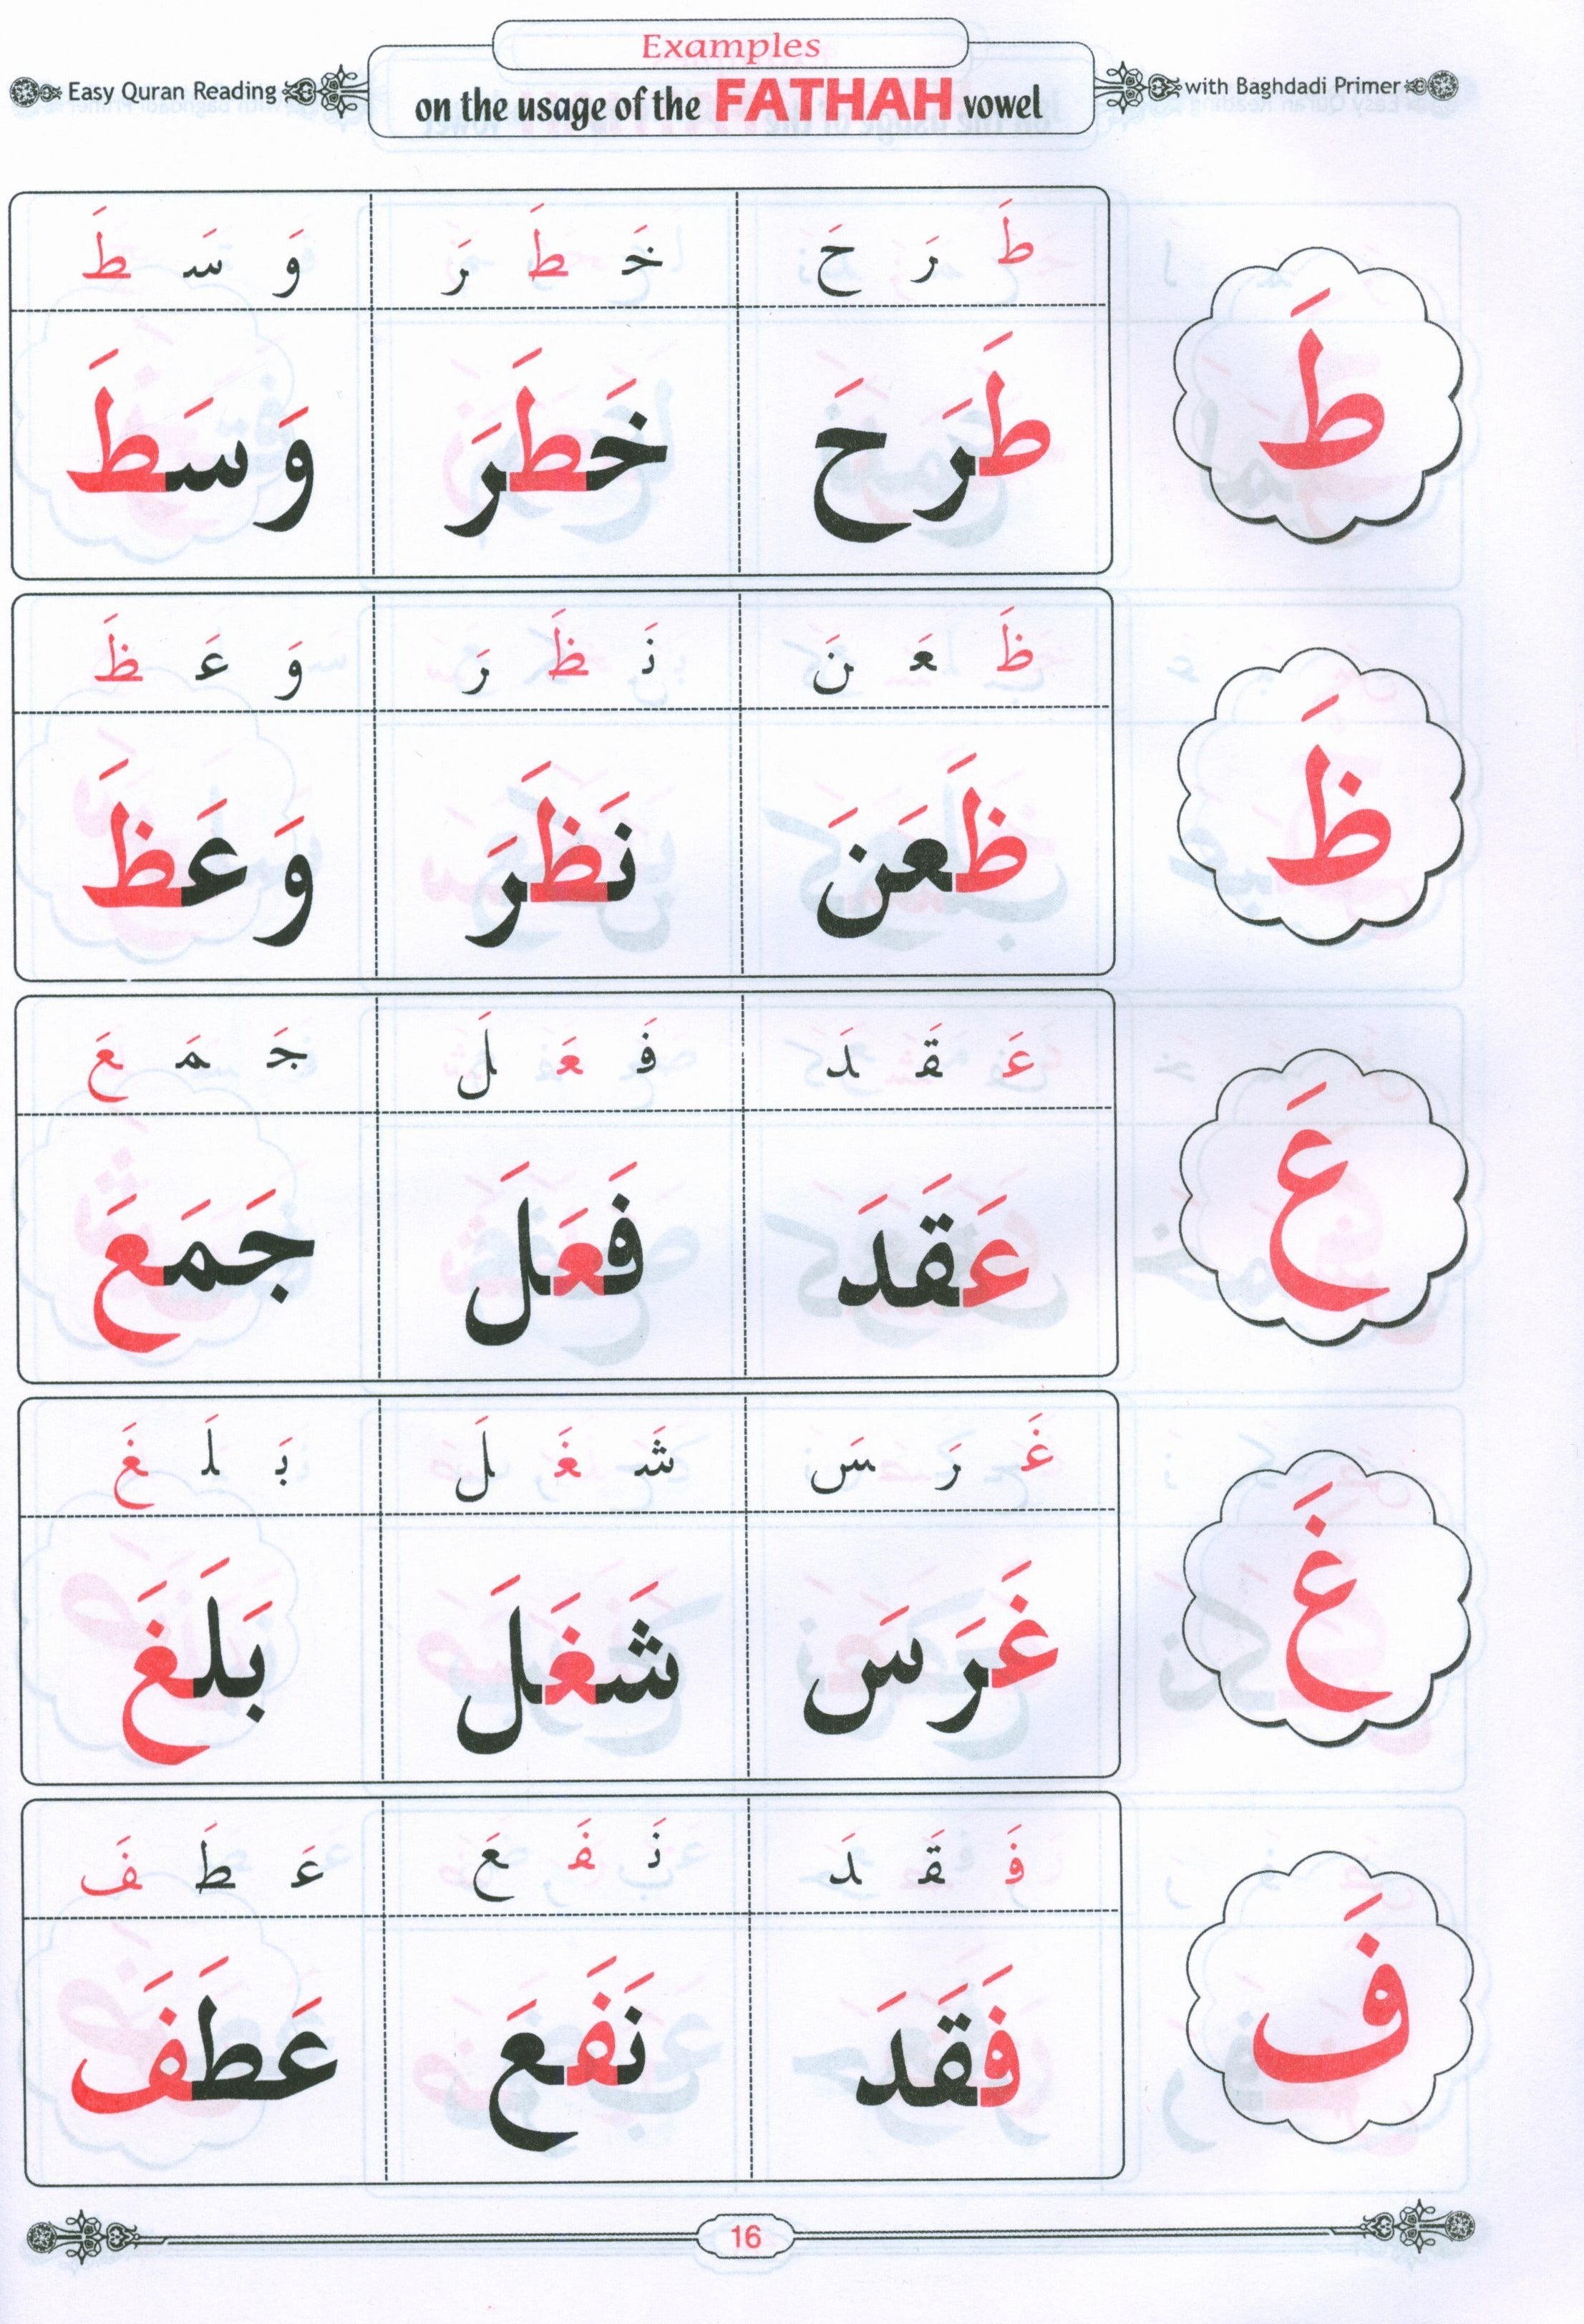 Examples
Easy Quran Reading on the usage of the FATHAH vowel with Baghdadi Primer
طَ
طَ رَ حَ خَ طَ رَ وَ سَ طَ
طَرَحَ خَطَرَ وَسَطَ
ظَ
ظَ عَ نَ نَ ظَ رَ وَ عَ ظَ
ظَعَنَ نَظَرَ وَعَظَ
عَ
عَ قَ دَ فَ عَ لَ جَ مَ عَ
عَقَدَ فَعَلَ جَمَعَ
غَ
غَ رَ سَ شَ غَ لَ بَ لَ غَ
غَرَسَ شَغَلَ بَلَغَ
فَ
فَ قَ دَ نَ فَ عَ عَ طَ فَ
فَقَدَ نَفَعَ عَطَفَ
16